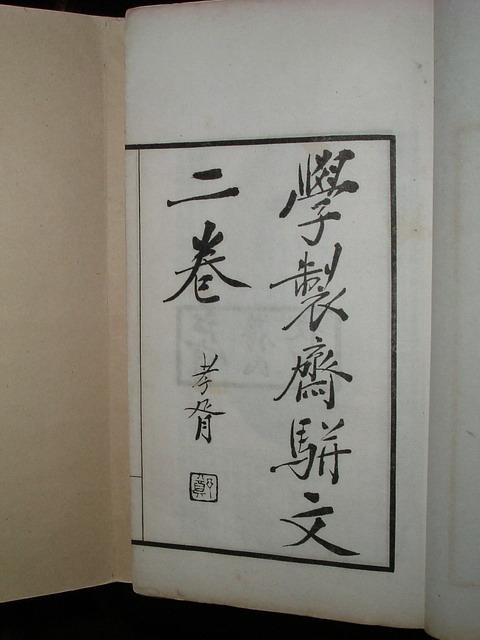 學製齋駢文
二卷
孝胥
鄭